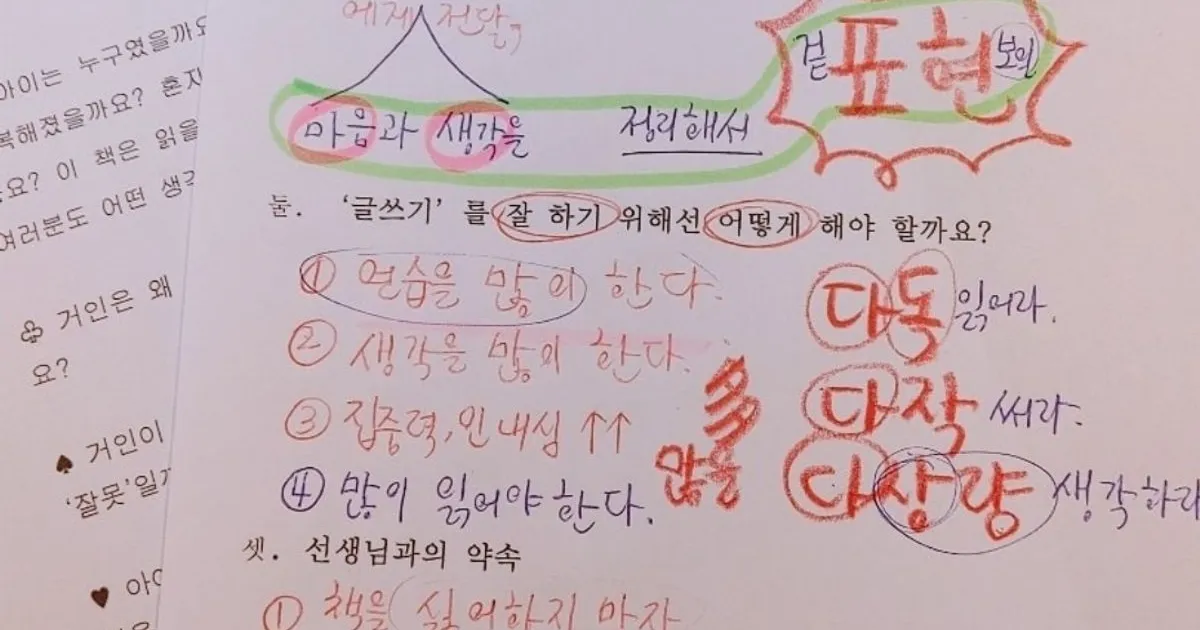 아이는 누구였을까요
복해졌을까요? 혼자
요? 이 책은 읽을
여러분도 어떤 생각
♧ 거인은 왜
요?
♠ 거인이
'잘못'일까
♥ 아이
에게 전달,
마음과 생각을 정리해서
겉표현
둘. '글쓰기' 를 잘 하기 위해선 어떻게 해야 할까요?
① 연습을 많이 한다.
② 생각을 많이 한다.
③ 집중력, 인내심 ↑↑
④ 많이 읽어야 한다.
多
많을
다독 읽어라.
다작 써라.
다상량 생각하라
셋. 선생님과의 약속
① 책을 싫어하지 마자